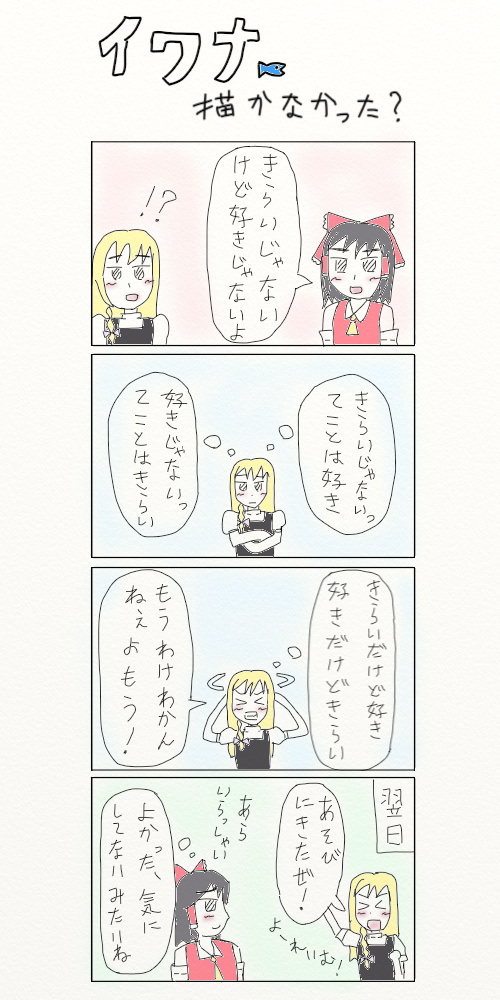 イワナ
描かなかった?
きらいじゃない
けど好きじゃないよ
!?
きらいじゃないっ
てことは好き
好きじゃないっ
てことはきらい
きらいだけど好き
好きだけどきらい
もうわけわかん
ねぇよもう!
翌日
あそび
にきたぜ!
よーれいむ!
あら
いらっしゃい
よかった、気に
してないみたいね